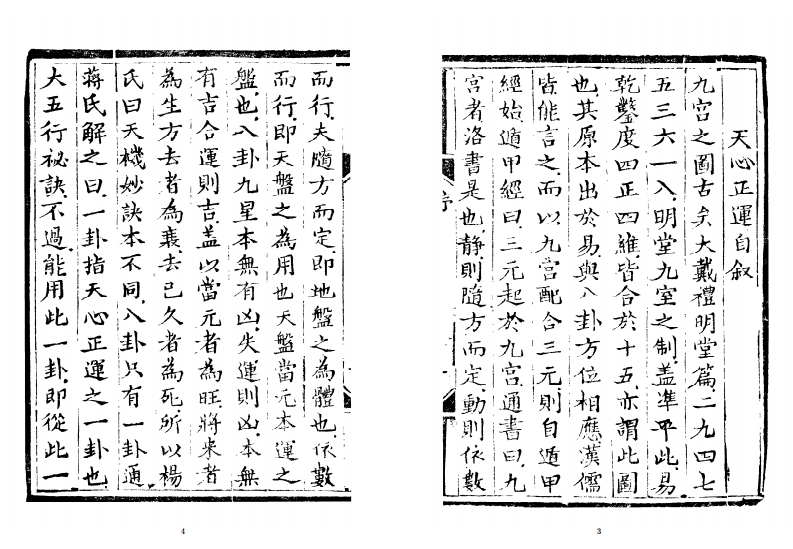 天心正運自叙
九宫之圖古矣大戴禮明堂篇二九四七
五三六一八明堂九室之制盖凖乎此易
乾鑿度四正四維皆合於十五亦謂此圖
也其原本出於易與八卦方位相應漢儒
皆能言之而以九宫配合三元則自遁甲
經始遁甲經曰三元起於九宫通書曰九
宫者洛書是也静則隨方而定動則依數
序
3
而行夫隨方而定即地盤之為體也依數
而行即天盤之為用也天盤當元本運之
盤也八卦九星本無有凶失運則凶本無
有吉合運則吉盖以當元者為旺將來者
為生方去者為衰去已久者為死所以楊
氏曰天機妙訣本不同八卦只有一卦通
蔣氏解之曰一卦指天心正運之一卦也
大五行祕訣不過能用此一卦即從此一
4